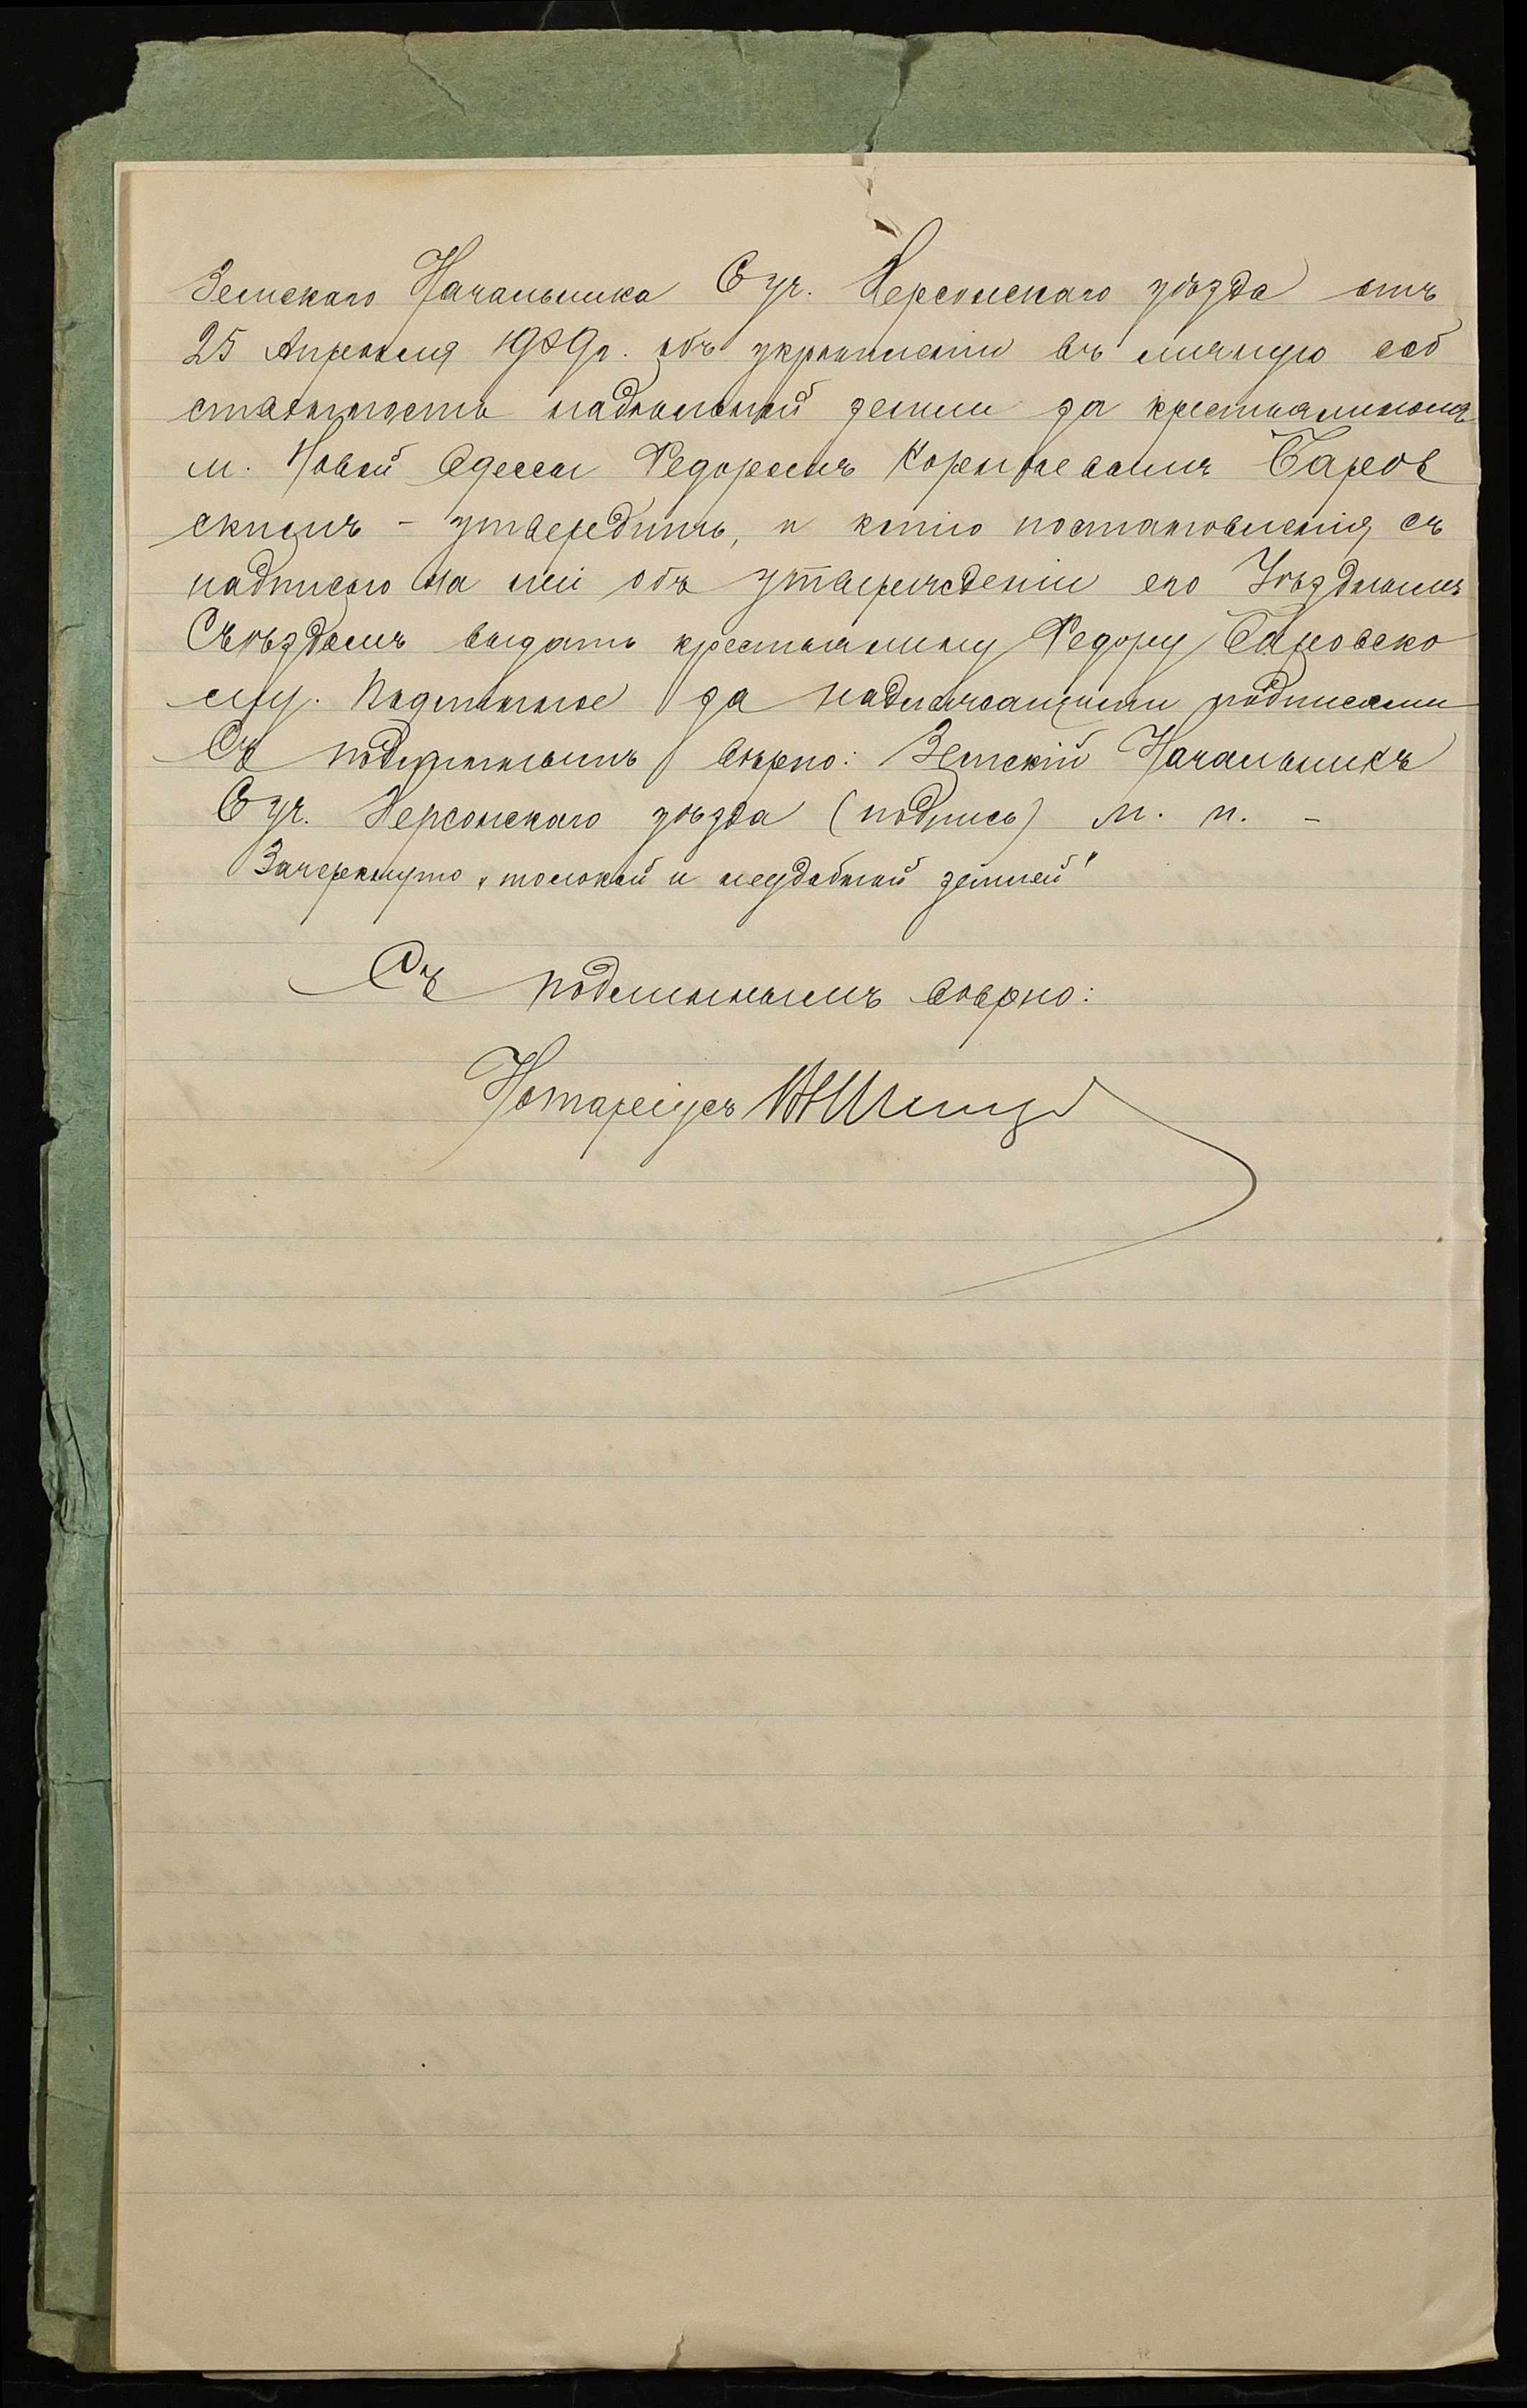 Земскаго Начальника 6 уч. Херсонскаго уѣзда отъ
25 Апрѣля 1909 г. объ укрѣпленіи въ личную соб
ственность надѣльной земли за крестьяниномъ
м. Новой Одессы Федоромъ Корнѣевымъ Баров
скимъ – утвердить, и копію постановленія, съ
надписью на ней объ утвержденіи его Уѣзднымъ
Съѣздомъ выдать крестьянину Федору Баровско
му. Подлинное за надлежащими подписями
Съ подлиннымъ вѣрно: Земскій Начальникъ
6 уч. Херсонскаго уѣзда (подпись) М. П. –
Зачеркнуто „толокой и неудобной землей"
Съ подлиннымъ вѣрно:
Нотаріусъ